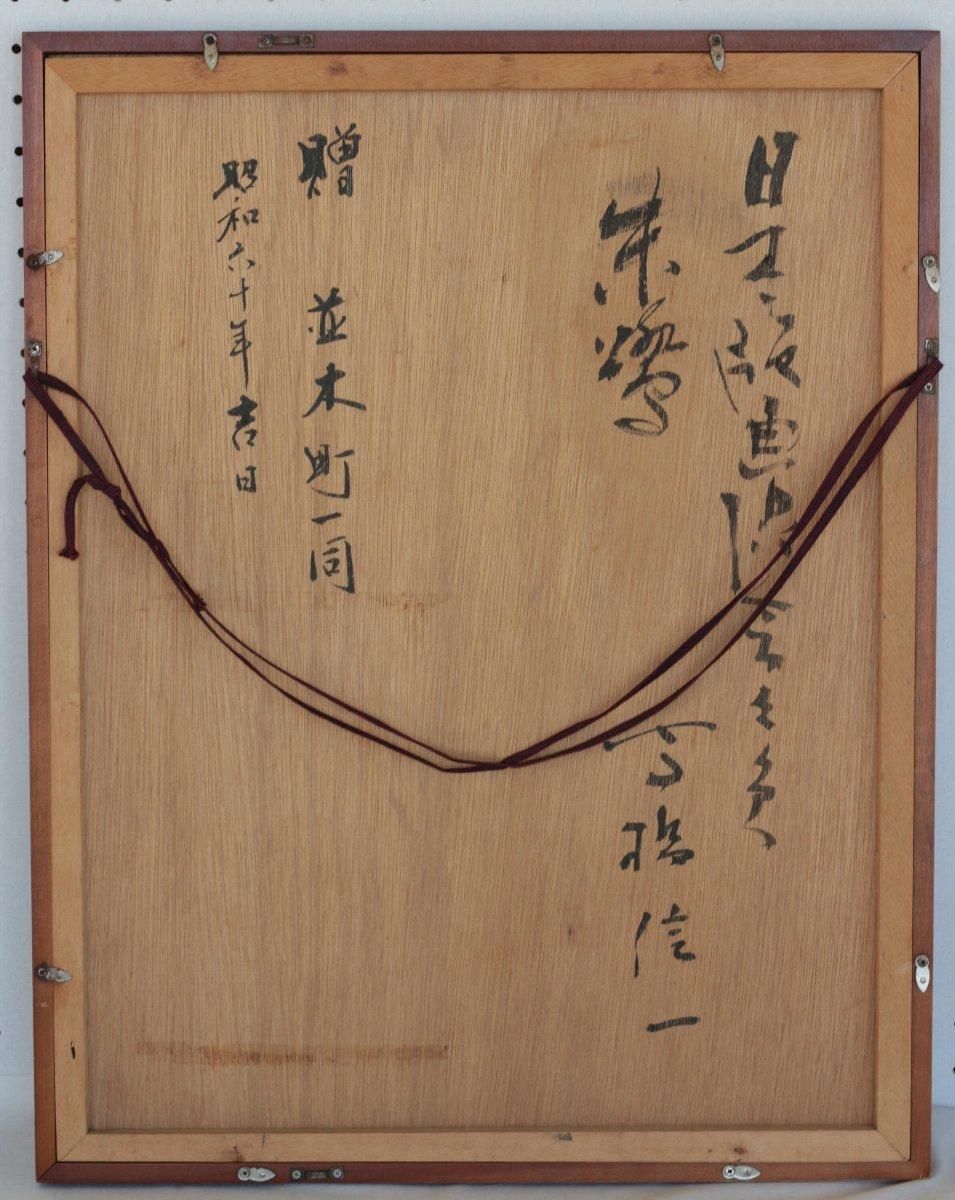 日本版画院会員
朱鷺
高橋信一
贈 並木町一同
昭和六十年吉日